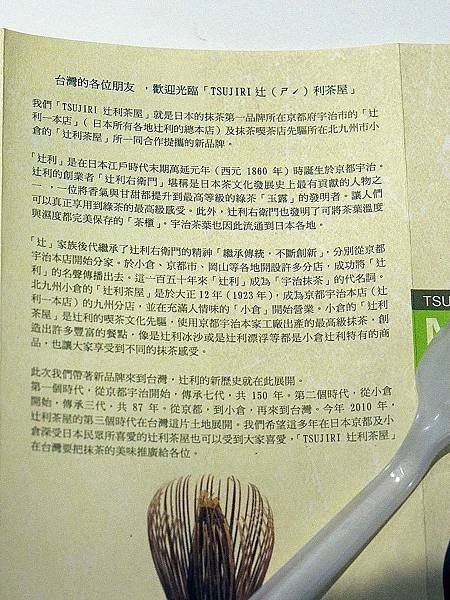 台灣的各位朋友 ，歡迎光臨「TSUJIRI 辻（ㄕˊ）利茶屋」
我們「TSUJIRI 辻利茶屋」就是日本的抹茶第一品牌所在京都府宇治市的「辻
利一本店」( 日本所有各地辻利的總本店）及抹茶喫茶店先驅所在北九州市小
倉的「辻利茶屋」所一同合作提攜的新品牌。
「辻利」是在日本江戶時代末期萬延元年（西元 1860 年）時誕生於京都宇治。
辻利的創業者「辻利右衛門」堪稱是日本茶文化發展史上最有貢獻的人物之
一，一位將香氣與甘甜都提升到最高等級的綠茶「玉露」的發明者。讓人們
可以真正享用到綠茶的最高級感受。此外，辻利右衛門也發明了可將茶葉溫度
與濕度都完美保存的「茶櫃」。宇治茶葉也因此流通到日本各地。
「辻」家族後代繼承了辻利右衛門的精神「繼承傳統，不斷創新」，分別從京都
宇治本店開始分家。於小倉、京都市、岡山等各地開設許多分店，成功將「辻
利」的名聲傳播出去。這一百五十年來「辻利」成為「宇治抹茶」的代名詞。
北九州小倉的「辻利茶屋」是於大正 12 年（1923 年），成為京都宇治本店（辻
利一本店）的九州分店，並在充滿人情味的「小倉」開始營業。小倉的「辻利
茶屋」是辻利的喫茶文化先驅，使用京都宇治本家工廠出產的最高級抹茶，創
造出許多豐富的餐點，像是辻利冰沙或是辻利漂浮等都是小倉辻利特有的商
品，也讓大家享受到不同的抹茶感受。
此次我們帶著新品牌來到台灣，辻利的新歷史就在此展開。
第一個時代，從京都宇治開始，傳承七代，共 150 年。第二個時代，從小倉
開始，傳承三代，共 87 年。從京都，到小倉，再來到台灣。今年 2010 年，
辻利茶屋的第三個時代在台灣這片土地展開。我們希望這多年在日本京都及小
倉深受日本民眾所喜愛的辻利茶屋也可以受到大家喜愛，「TSUJIRI 辻利茶屋」
在台灣要把抹茶的美味推廣給各位。
TSU